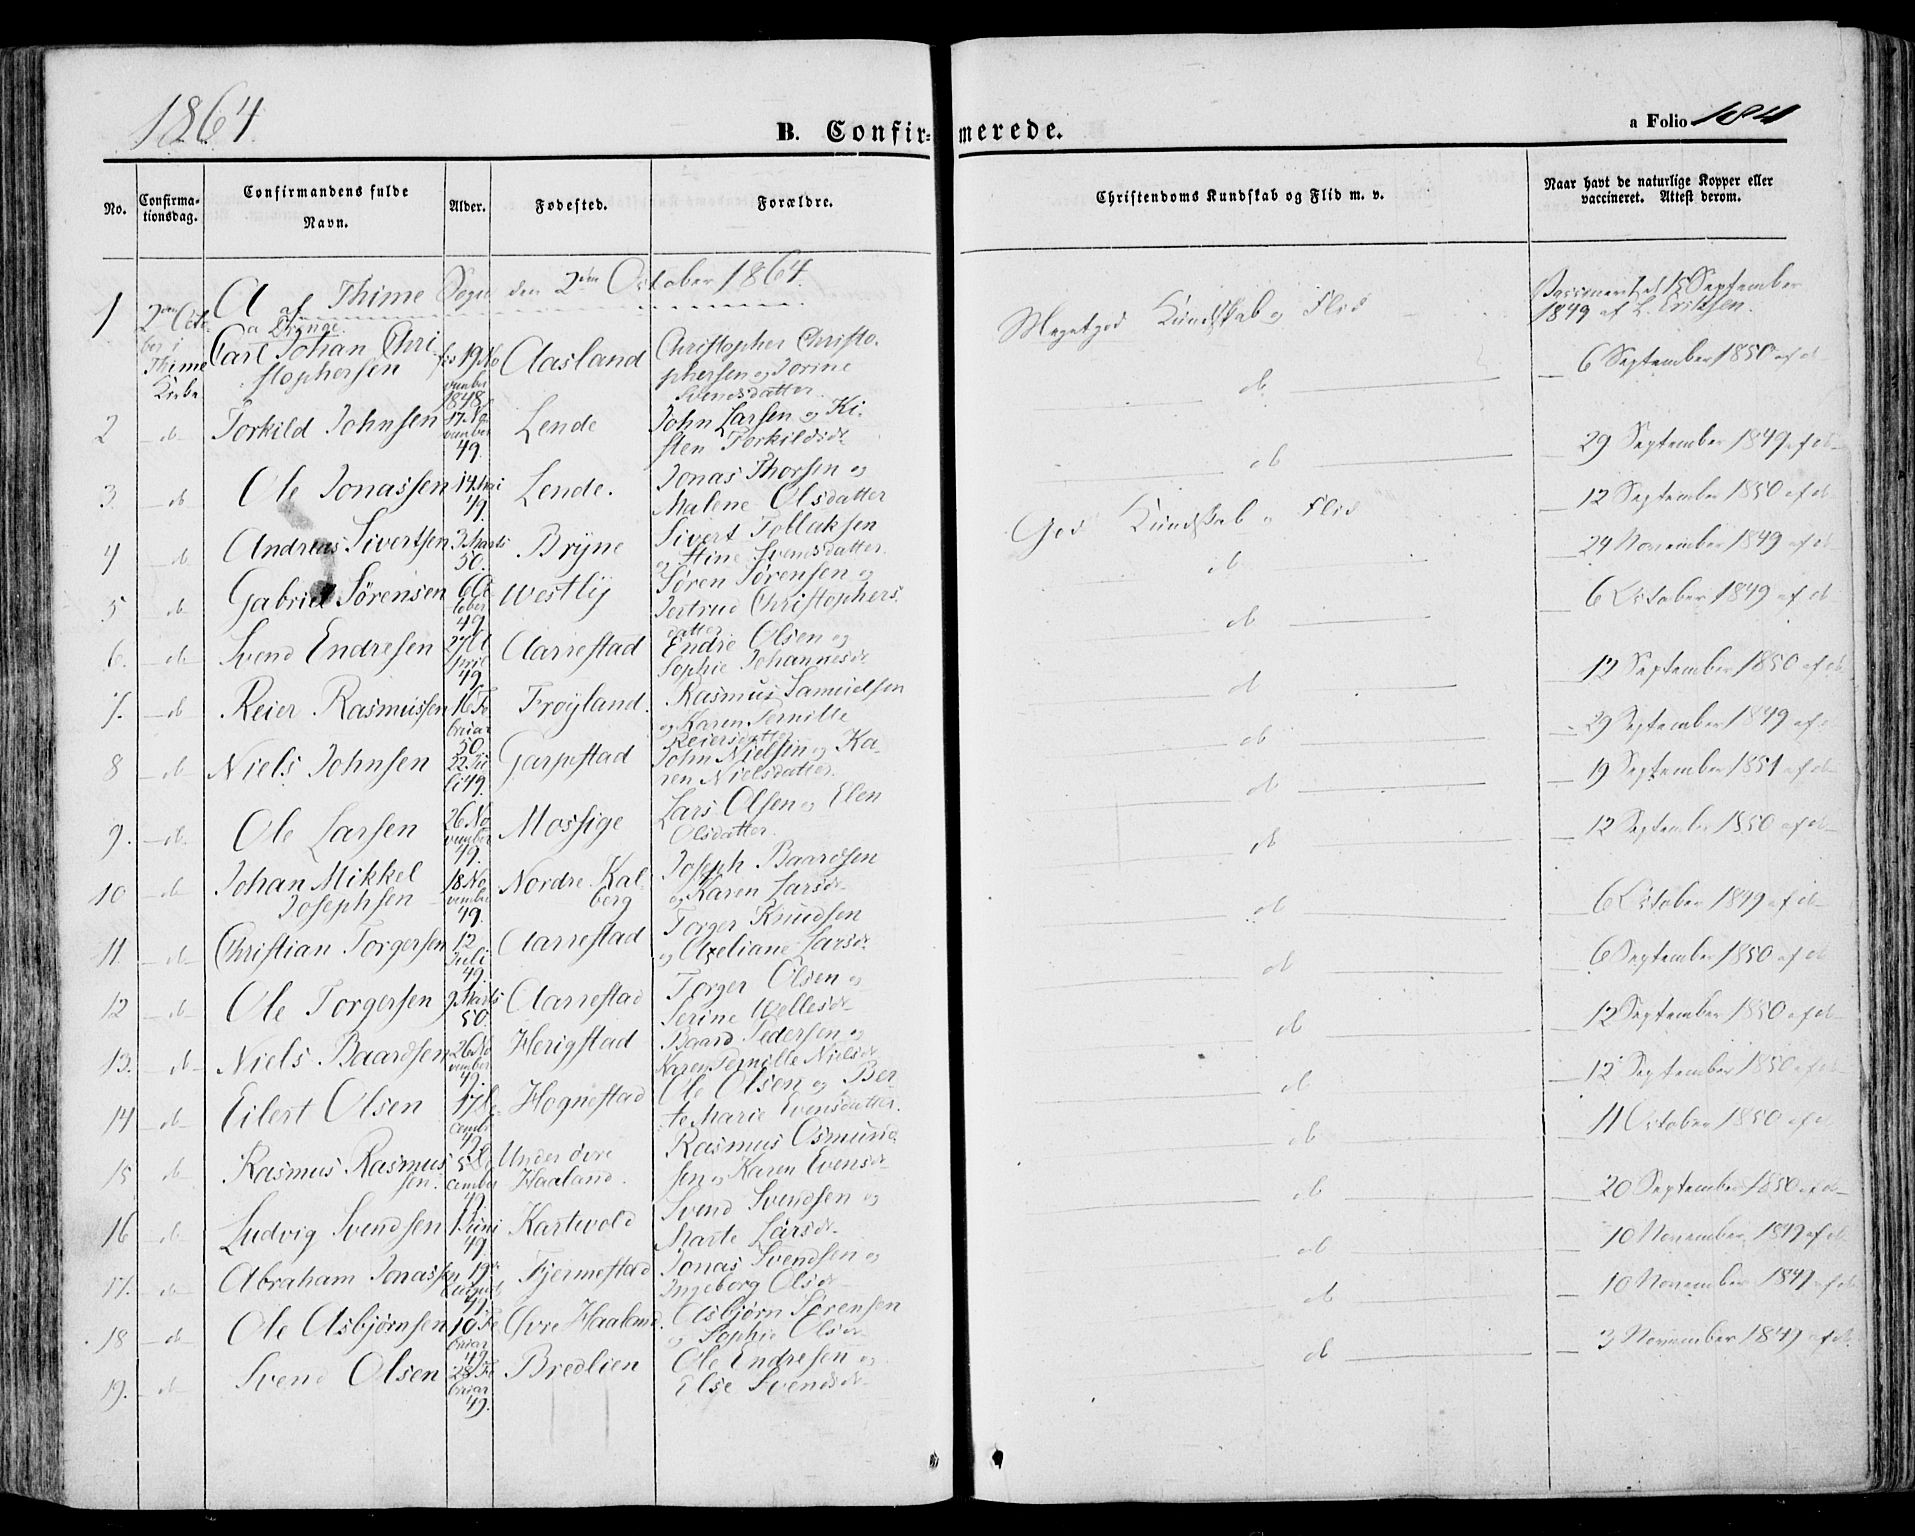 1864
B. Confirmerede.
a Folio 184
No. Confirmationsdag. Confirmandens fulde Navn. Alder. Fødested. Forældre. Christendoms Kundskab og Flid m. v. Naar havt de naturlige Kopper eller vaccineret. Attest derom.
A af Thime Sogn den 2den October 1864.
a Drenge
1 2den October i Thime Kirke Carl Johan Christophersen 19 November 1848 Aasland Christopher Christophersen og Jorine Svendsdatter Megetgod Kundskab og Flid Vaccineret d. 15 September 1849 af L. Eriksen.
2 do Torkild Johnsen 17 November 49. Lende John Larsen og Kisten Torkildsdr do 6 September 1850 af do
3. do Ole Jonassen 14 Mai 49. Lende. Jonas Thorsen og Malene Olsdatter do 29 September 1849 af do
4 do Andreas Sivertsen 3 Marts 50. Bryne Sivert Tollaksen og Stine Svensdatter God Kundskab og Flid 12 September 1850 af do
5 do Gabriel Sørensen 6 October 49 Westly Søren Sørensen og Jertrud Christophersdatter do 24 November 1849 af do
6. do Svend Endresen 27 April 49 Aarrestad Endre Olsen og Sophie Johannesdr do 6 October 1849 af do
7. do Reier Rasmussen 16 Februar 50 Frøyland. Rasmus Samuelsen og Karen Pernille Reiersdatter do 12 September 1850 af do
8 do Niels Johnsen 22 Juli 49. Garpestad John Nielsen og Karen Nielsdatter do 29 September 1849 af do
9. do Ole Larsen 26 November 49. Mossige Lars Olsen og Elen Olsdatter. do 19 September 1851 af do
10 do Johan Mikkel Josephsen 18 November 49. Nordre Kalberg Joseph Baardsen og Karen Larsdr do 12 September 1850 af do
11. do Christian Torgersen 12 Juli 49. Aarrestad Torger Knudsen og Axeliane Larsdr do 6 October 1849 af do
12 do Ole Torgersen 9 Marts 50. Aarrestad Torger Olsen og Serine do 6 September 1850 af do
13. do Niels Baardsen 26 November 49. Herigstad Baard Pedersen og Karen Pernille Nielsdr do 12 September 1850 af do
14 do Eilert Olsen 17 December 49 Hognestad Ole Olsen og Berte Marie Evensdatter. do 12 September 1850 af do
15 do Rasmus Rasmussen. 5 December 49 Under øvre Haaland. Rasmus Osmundsen og Karen Evensdr do 11 October 1850 af do
16 do Ludvig Svendsen 1 Juni 49. Kartevold Svend Svendsen og Marte Larsdr do 20 September 1850 af do
17. do Abraham Jonassen 19 August 49. Fjermestad Jonas Svendsen og Ingeborg Olsdr do 10 November 1849 af do
18 do Ole Asbjørnsen 10 Februar 49 Øvre Haaland. Asbjørn Sørensen og Sophie Olsdr do 10 November 1849 af do
19. do Svend Olsen 28 Februar 49. Bredlien Ole Endresen og Else Svendsdr do 3 November 1849 af do